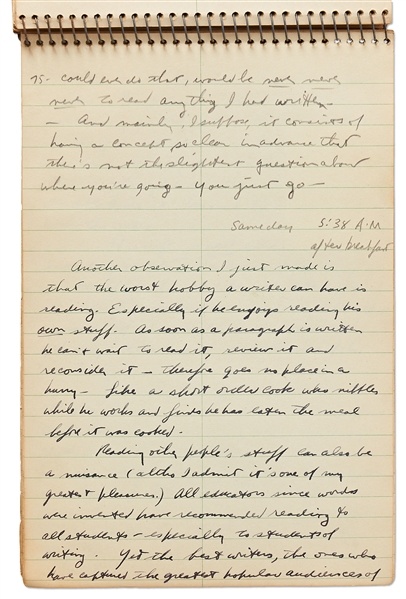 75- could ever do that, would be never never
never to read anything I had written -
- And mainly, I suppose, it consists of
having a concept so clear in advance that
there's not the slightest question about
where you're going - you just go -
Same day 5:38 A.M
after breakfast
Another observation I just made is
that the worst hobby a writer can have is
reading. Especially if he enjoys reading his
own stuff. As soon as a paragraph is written
he can't wait to read it, review it and
reconsider it - therefore goes no place in a
hurry - like a short order cook who nibbles
while he works and finds he has eaten the meal
before it was cooked.
Reading other people's stuff can also be
a nuisance (altho I admit it's one of my
greatest pleasures.) All educators since words
were invented have recommended reading to
all students - especially to students of
writing. Yet the best writers, the ones who
have captured the greatest popular audiences of